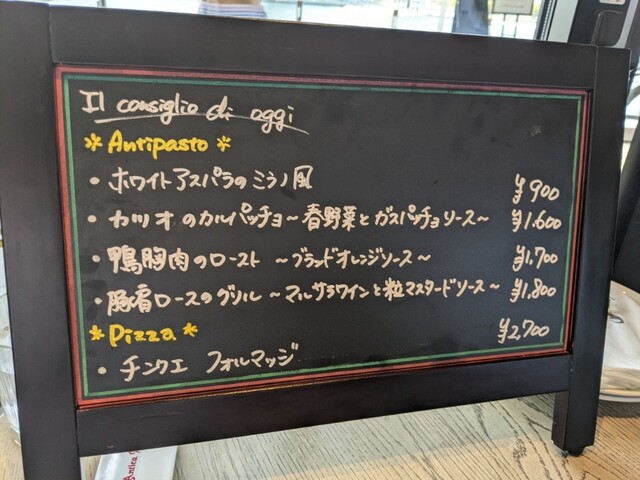 Il consiglio di oggi
*Antipasto*
・ホワイトアスパラのミラノ風 ¥900
・カツオのカルパッチョ~春野菜とガスパチョソース~ ¥1.600
・鴨胸肉のロースト ~ブラッドオレンジソース~ ¥1.700
・豚肩ロースのグリル ~マルサラワインと粒マスタードソース~ ¥1.800
*Pizza* ¥2.700
・チンクエ フォルマッジ